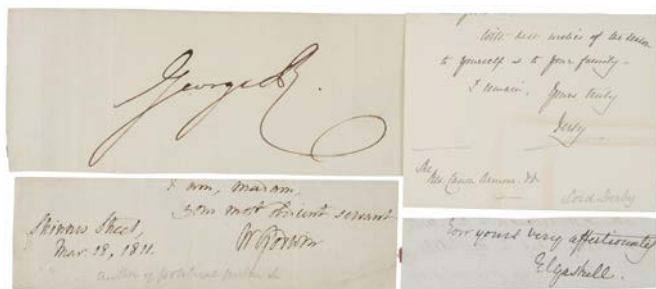 George R.
With best wishes of the season
to yourself & to your family –
I remain, Yours truly
Derby
The
Rev Canon
Lord Derby
I am, Madam,
your most obient servant
W Godwin
Skinner Street,
Mar. 18, 1811.
author of political justice &
Ever yours very affectionately
E C Gaskell.